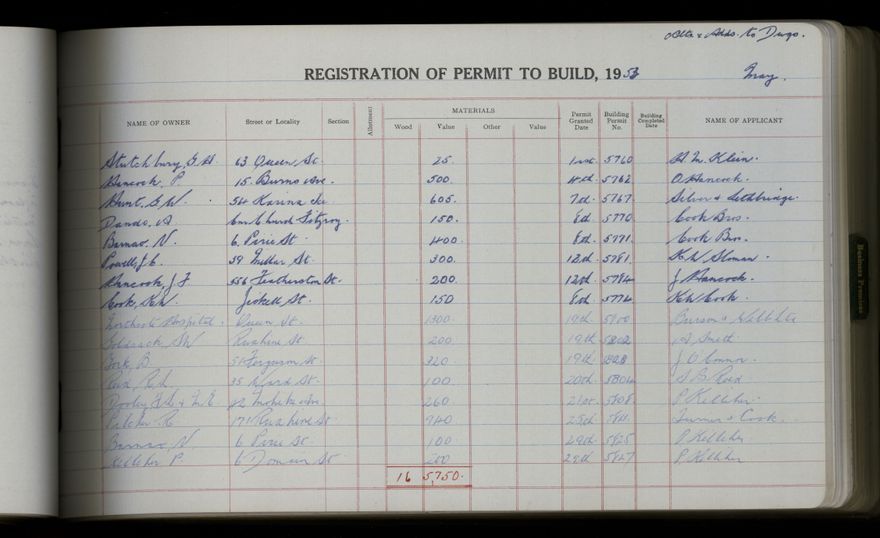 Alts & Adds. to Dwgs.
REGISTRATION OF PERMIT TO BUILD, 1953
May.
NAME OF OWNER Street or Locality Section Allotment MATERIALS Wood Value Other Value Permit Granted Date Building Permit No. Building Completed Date NAME OF APPLICANT
Stutchbury, G. 63 Queen St. 25. 1st. 5760 Klein.
Hancock, P. 15. Burns Ave. 500. 4th. 5762 Hancock.
Hunt, G.W. 54 Karina 605. 7th. 5767. Silver & Lethbridge.
Dando, A Cnr Church Fitzroy. 150. 8th. 5770 Cook Bros.
Barnao, N. 6. Pirie St. 400. 8th. 5771. Cook Bros.
Powell, J.C. 39 Millar St. 300. 12th. 5781. Sloman.
Hancock, J. F 556 Featherston St. 200. 12th. 5784 J Hancock.
Cook, K.W. Jickell St. 150 8th. 5774 K.W. Cook.
Northcote Hospital. Queen St. 1300. 19th 5800
Ruahine St. 200 19th 5802 Smith
York, B 51 Ferguson St. 320 19th J O'Connor.
Reid, 35 Ward St. 100. 20th. 5804 Reid
Dooley 42 260 21st. 5808. P Kelliher.
Pilcher R. 171 Ruahine St 940. 25th. Turner & Cook.
Barnao, N 6 Pirie St. 100 29th 5825 P Kelliher
Kelliher P. 6 Domain St 200 29th 5827 P. Kelliher
16 5,750.
Business Premises